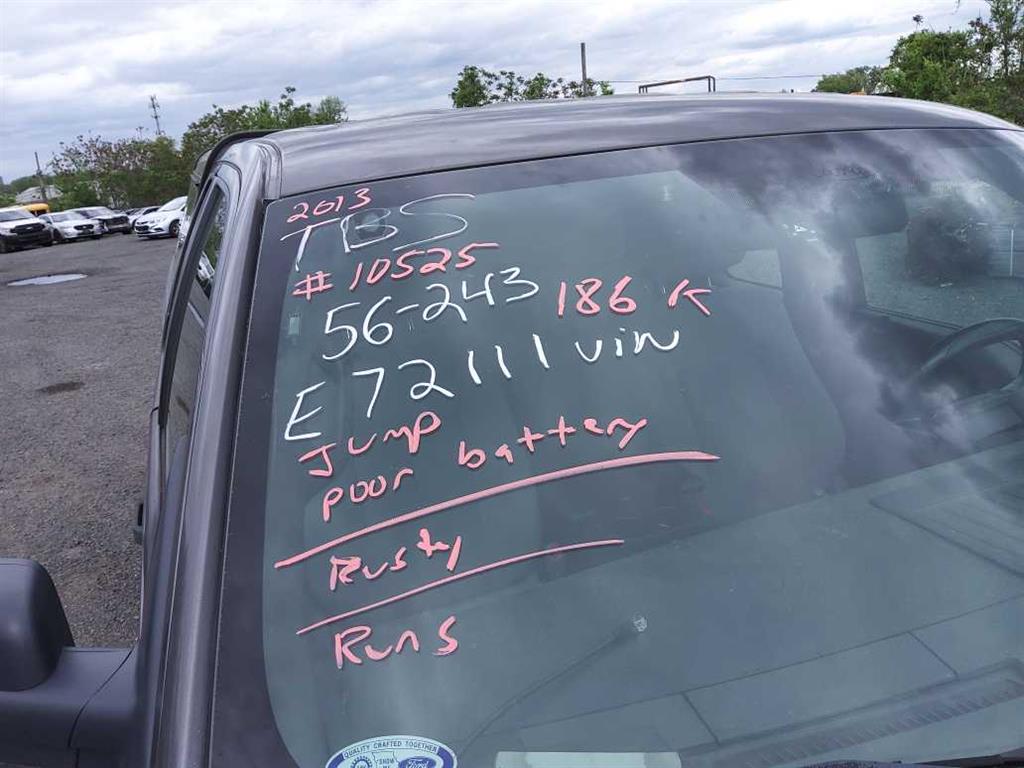 2013
TBS
# 10525
56-243 186 K
E72111 VIN
Jump
poor battery
Rusty
Runs
QUALITY CRAFTED TOGETHER
Ford